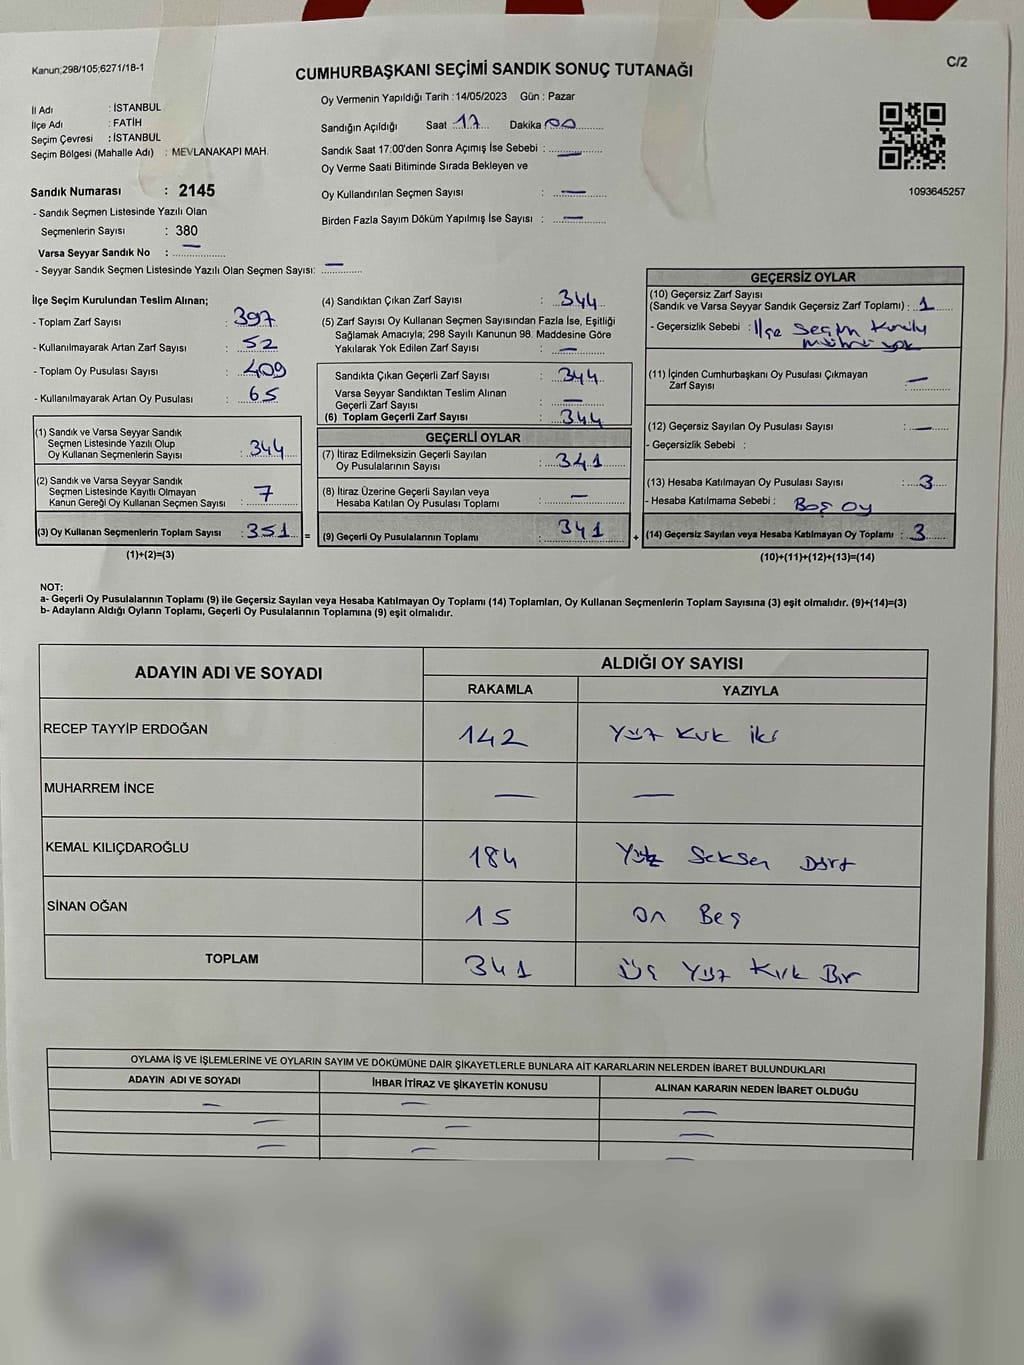 Kanun;298/105;6271/18-1
CUMHURBAŞKANI SEÇİMİ SANDIK SONUÇ TUTANAĞI
C/2
İl Adı : İSTANBUL
İlçe Adı : FATİH
Seçim Çevresi : İSTANBUL
Seçim Bölgesi (Mahalle Adı) : MEVLANAKAPI MAH.
Oy Vermenin Yapıldığı Tarih :14/05/2023 Gün : Pazar
Sandığın Açıldığı Saat 17 Dakika 00
Sandık Saat 17:00'den Sonra Açımış İse Sebebi : —
Oy Verme Saati Bitiminde Sırada Bekleyen ve
Oy Kullandırılan Seçmen Sayısı : —
Birden Fazla Sayım Döküm Yapılmış İse Sayısı : —
1093645257
Sandık Numarası : 2145
- Sandık Seçmen Listesinde Yazılı Olan
Seçmenlerin Sayısı : 380
Varsa Seyyar Sandık No : —
- Seyyar Sandık Seçmen Listesinde Yazılı Olan Seçmen Sayısı: —
İlçe Seçim Kurulundan Teslim Alınan;
- Toplam Zarf Sayısı : 397
- Kullanılmayarak Artan Zarf Sayısı : 52
- Toplam Oy Pusulası Sayısı : 409
- Kullanılmayarak Artan Oy Pusulası : 65
(1) Sandık ve Varsa Seyyar Sandık
Seçmen Listesinde Yazılı Olup
Oy Kullanan Seçmenlerin Sayısı : 344
(2) Sandık ve Varsa Seyyar Sandık
Seçmen Listesinde Kayıtlı Olmayan
Kanun Gereği Oy Kullanan Seçmen Sayısı : 7
(3) Oy Kullanan Seçmenlerin Toplam Sayısı : 351 =
(1)+(2)=(3)
(4) Sandıktan Çıkan Zarf Sayısı : 344
(5) Zarf Sayısı Oy Kullanan Seçmen Sayısından Fazla İse, Eşitliği
Sağlamak Amacıyla; 298 Sayılı Kanunun 98. Maddesine Göre
Yakılarak Yok Edilen Zarf Sayısı : —
Sandıkta Çıkan Geçerli Zarf Sayısı : 344
Varsa Seyyar Sandıktan Teslim Alınan
Geçerli Zarf Sayısı : —
(6) Toplam Geçerli Zarf Sayısı : 344
GEÇERLİ OYLAR
(7) İtiraz Edilmeksizin Geçerli Sayılan
Oy Pusulalarının Sayısı : 341
(8) İtiraz Üzerine Geçerli Sayılan veya
Hesaba Katılan Oy Pusulası Toplamı : —
(9) Geçerli Oy Pusulalarının Toplamı : 341 +
GEÇERSİZ OYLAR
(10) Geçersiz Zarf Sayısı
(Sandık ve Varsa Seyyar Sandık Geçersiz Zarf Toplamı) : 1
- Geçersizlik Sebebi : İlçe Seçim Kurulu
mührü yok
(11) İçinden Cumhurbaşkanı Oy Pusulası Çıkmayan
Zarf Sayısı : —
(12) Geçersiz Sayılan Oy Pusulası Sayısı : —
- Geçersizlik Sebebi :
(13) Hesaba Katılmayan Oy Pusulası Sayısı : 3
- Hesaba Katılmama Sebebi : Boş Oy
(14) Geçersiz Sayılan veya Hesaba Katılmayan Oy Toplamı : 3
(10)+(11)+(12)+(13)=(14)
NOT:
a- Geçerli Oy Pusulalarının Toplamı (9) ile Geçersiz Sayılan veya Hesaba Katılmayan Oy Toplamı (14) Toplamları, Oy Kullanan Seçmenlerin Toplam Sayısına (3) eşit olmalıdır. (9)+(14)=(3)
b- Adayların Aldığı Oyların Toplamı, Geçerli Oy Pusulalarının Toplamına (9) eşit olmalıdır.
ADAYIN ADI VE SOYADI ALDIĞI OY SAYISI
RAKAMLA YAZIYLA
RECEP TAYYİP ERDOĞAN 142 Yüz Kırk iki
MUHARREM İNCE — —
KEMAL KILIÇDAROĞLU 184 Yüz Seksen Dört
SİNAN OĞAN 15 On Beş
TOPLAM 341 Üç Yüz Kırk Bir
OYLAMA İŞ VE İŞLEMLERİNE VE OYLARIN SAYIM VE DÖKÜMÜNE DAİR ŞİKAYETLERLE BUNLARA AİT KARARLARIN NELERDEN İBARET BULUNDUKLARI
ADAYIN ADI VE SOYADI İHBAR İTİRAZ VE ŞİKAYETİN KONUSU ALINAN KARARIN NEDEN İBARET OLDUĞU
— — —
— — —
— — —